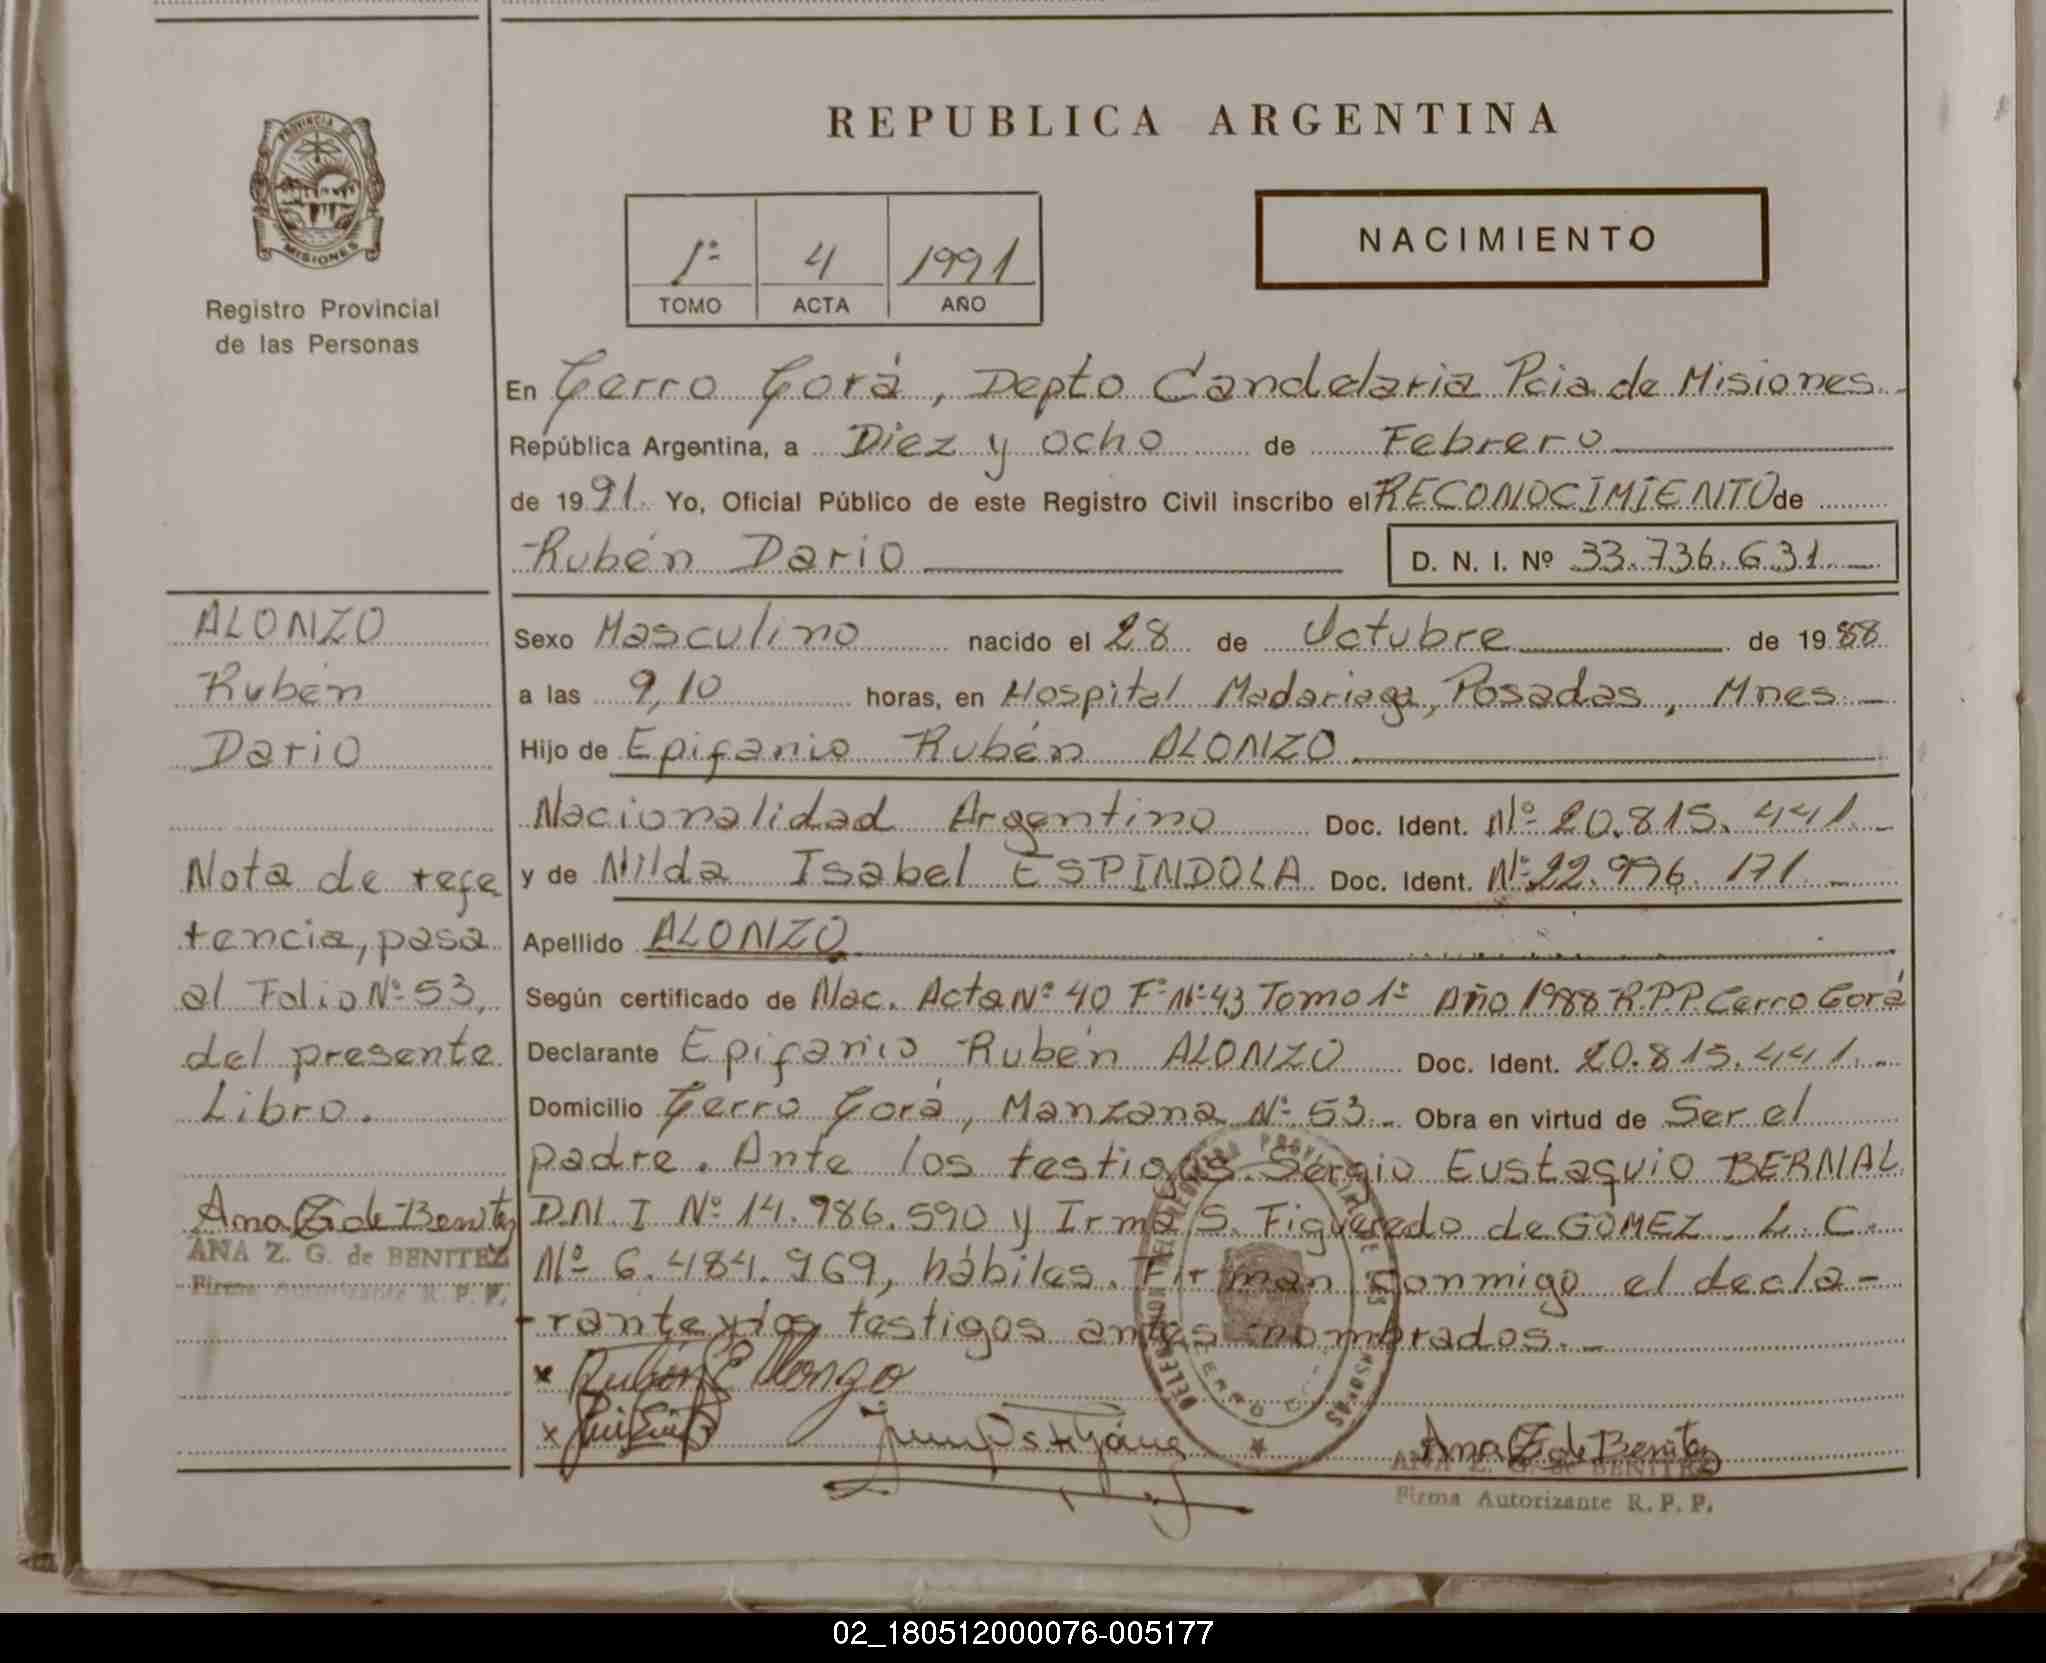 REPUBLICA ARGENTINA
PROVINCIA DE
MISIONES
Registro Provincial
de las Personas
1º 4 1991
TOMO ACTA AÑO
NACIMIENTO
En Cerro Corá, Depto Candelaria Pcia de Misiones.
República Argentina, a Diez y ocho de Febrero
de 1991. Yo, Oficial Público de este Registro Civil inscribo el RECONOCIMIENTO de
Rubén Dario D. N. I. Nº 33.736.631
Sexo Masculino nacido el 28 de Octubre de 1988
a las 9,10 horas, en Hospital Madariaga, Posadas, Mnes
Hijo de Epifanio Rubén ALONZO
Nacionalidad Argentino Doc. Ident. Nº 20.815.441.
y de Nilda Isabel ESPINDOLA Doc. Ident. Nº 22.996.171
Apellido ALONZO
Según certificado de Nac. Acta Nº 40 Fº Nº 43 Tomo 1º Año 1988 R.P.P. Cerro Corá
Declarante Epifanio Rubén ALONZO Doc. Ident. 20.815.441.
Domicilio Cerro Corá, Manzana Nº 53. Obra en virtud de Ser el
padre. Ante los testigos Sergio Eustaquio BERNAL
D.N.I Nº 14.986.590 y Irma S. Figueredo de GOMEZ L.C.
Nº 6.484.969, hábiles. Firman conmigo el decla-
rante y los testigos antes nombrados.
ALONZO
Rubén
Dario
Nota de refe
rencia, pasa
al Folio Nº 53,
del presente
Libro.
Ana Z G de Benitez
ANA Z. G. de BENITEZ
Firma Autorizante R. P. P.
x Rubén E Alonzo
x
Ana Z G de Benitez
ANA Z. G. de BENITEZ
Firma Autorizante R. P. P.
02_180512000076-005177